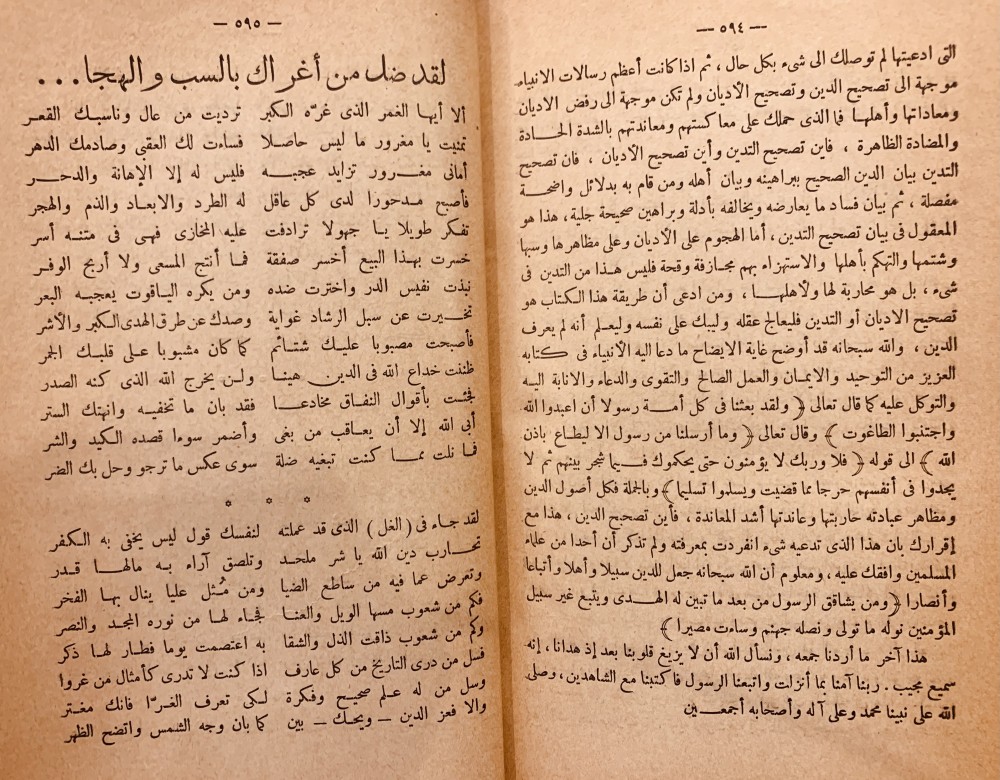 — ٥٩٤ —
التى ادعيتها لم توصلك الى شىء بكل حال ، ثم اذا كانت أعظم رسالات الانبياء
موجهة الى تصحيح الدين وتصحيح الأديان ولم تكن موجهة الى رفض الاديان
ومعاداتها وأهلها فما الذى حملك على معاكستهم ومعاندتهم بالشدة الحادة
والمضادة الظاهرة ، فاين تصحيح التدين وأين تصحيح الأديان ، فان تصحيح
التدين بيان الدين الصحيح ببراهينه وبيان أهله ومن قام به بدلائل واضحة
مفصلة ، ثم بيان فساد ما يعارضه ويخالفه بأدلة وبراهين صحيحة جلية ، هذا هو
المعقول فى بيان تصحيح التدين ، أما الهجوم على الأديان وعلى مظاهرها وسبها
وشتمها والتهكم بأهلها والاستهزاء بهم مجازفة وقحة فليس هذا من التدين فى
شىء ، بل هو محاربة لها ولأهلهـا ، ومن ادعى أن طريقة هذا الكتاب هو
تصحيح الاديان أو التدين فليعالج عقله وليبك على نفسه وليعلم أنه لم يعرف
الدين ، والله سبحانه قد أوضح غاية الايضاح ما دعا اليه الأنبياء فى كتابه
العزيز من التوحيد والايمان والعمل الصالح والتقوى والدعاء والانابة اليه
والتوكل عليه كما قال تعالى ﴿ ولقد بعثنا فى كل أمة رسولا أن اعبدوا الله
واجتنبوا الطاغوت ﴾ وقال تعالى ﴿ وما أرسلنا من رسول الا ليطاع باذن
الله ﴾ الى قوله ﴿ فلا وربك لا يؤمنون حتى يحكموك فيما شجر بينهم ثم لا
يجدوا فى أنفسهم حرجا مما قضيت ويسلموا تسليما ﴾ وبالجملة فكل أصول الدين
ومظاهر عبادته حاربتها وعاندتها أشد المعاندة ، فأين تصحيح الدين ، هذا مع
إقرارك بان هذا الذى تدعيه شىء انفردت بمعرفته ولم تذكر أن أحدا من علماء
المسلمين وافقك عليه ، ومعلوم أن الله سبحانه جعل للدين سبيلا وأهلا وأتباعا
وأنصارا ﴿ ومن يشاقق الرسول من بعد ما تبين له الهدى ويتبع غير سبيل
المؤمنين نوله ما تولى ونصله جهنم وساءت مصيرا ﴾
هذا آخر ما أردنا جمعه ، ونسأل الله أن لا يزيغ قلوبنا بعد إذ هدانا ، إنه
سميع مجيب . ربنا آمنا بما أنزلت واتبعنا الرسول فاكتبنا مع الشاهدين ، وصلى
الله على نبينا محمد وعلى آله وأصحابه أجمعين
— ٥٩٥ —
لقد ضل من أغراك بالسب والهجا...
ألا أيها الغمر الذى غرّه الكبر ترديت من عال وناسبك القعر
تمنيت يا مغرور ما ليس حاصلا فساءت لك العقبى وصادمك الدهر
أمانى مغرور تزايد عجبه فليس له إلا الإهانة والدحر
فأصبح مدحورا لدى كل عاقل له الطرد والابعاد والذم والهجر
تفكر طويلا يا جهولا ترادفت عليه المخازى فهى فى متنه أسر
خسرت بهذا البيع أخسر صفقة فما أنتج المسعى ولا أربح الوفر
نبذت نفيس الدر واخترت ضده ومن يكره الياقوت يعجبه البعر
تخيرت عن سبل الرشاد غواية وصدك عن طرق الهدى الكبر والأشر
فأصبحت مصبوبا عليك شتائم كما كان مشبوبا على قلبك الجمر
ظننت خداع الله فى الدين هينا ولن يخرج الله الذى كنه الصدر
فجئت بأقوال النفاق مخادعا فقد بان ما تخفيه وانهتك الستر
أبى الله إلا أن يعاقب من بغى وأضمر سوءا قصده الكيد والشر
فما نلت مما كنت تبغيه ضلة سوى عكس ما ترجو وحل بك الضر
* * *
لقد جاء فى (الغل) الذى قد عملته لنفسك قول ليس يخفى به الكفر
تحارب دين الله يا شر ملحد وتلصق آراء به مالها قدر
وتعرض عما فيه من ساطع الضيا ومن مُثل عليا ينال بها الفخر
فكم من شعوب مسها الويل والعنا فجاء لها من نوره المجد والنصر
وكم من شعوب ذاقت الذل والشقا به اعتصمت يوما فطار لها ذكر
فسل من درى التاريخ من كل عارف اذا كنت لا تدرى كأمثال من غروا
وسل من له علم صحيح وفكرة لكى تعرف الغرّا فانك مغتر
والا فعز الدين — ويحك — بين كما بان وجه الشمس واتضح الظهر